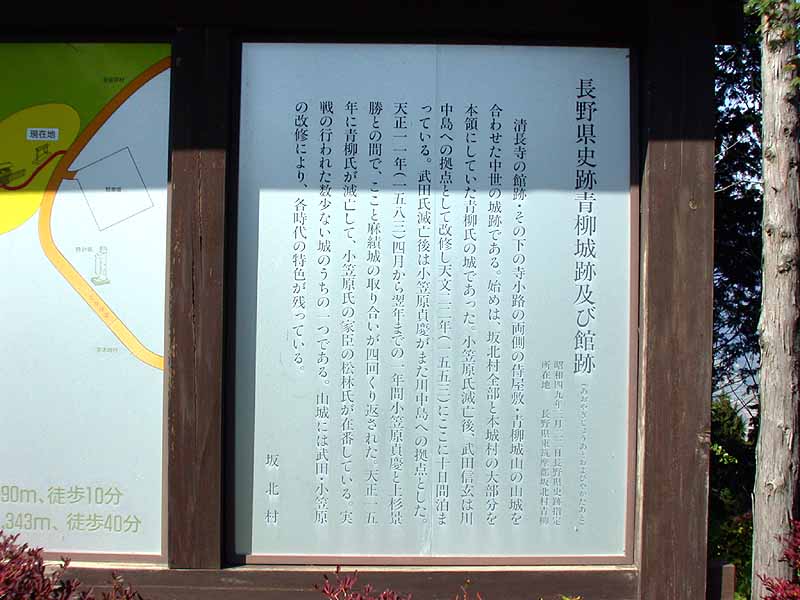 長野県史跡青柳城跡及び館跡
(あおやぎじょうあとおよびやかたあと)
昭和四九年一月二二日長野県史跡指定
所在地 長野県東筑摩郡坂北村青柳
清長寺の館跡・その下の寺小路の両側の侍屋敷・青柳城山の山城を
合わせた中世の城跡である。始めは、坂北村全部と本城村の大部分を
本領にしていた青柳氏の城であった。小笠原氏滅亡後、武田信玄は川
中島への拠点として改修し天文二二年(一五五三)にここに十日間泊ま
っている。武田氏滅亡後は小笠原貞慶がまた川中島への拠点とした。
天正一一年(一五八三)四月から翌年までの一年間小笠原貞慶と上杉景
勝との間で、ここと麻績城の取り合いが四回くり返された。天正一五
年に青柳氏が滅亡して、小笠原氏の家臣の松林氏が在番している。実
戦の行われた数少ない城のうちの一つである。山城には武田・小笠原
の改修により、各時代の特色が残っている。
坂北村
現在地
90m、徒歩10分
.343m、徒歩40分